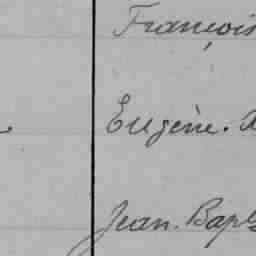 François
Eugène. A
Jean. Bapt